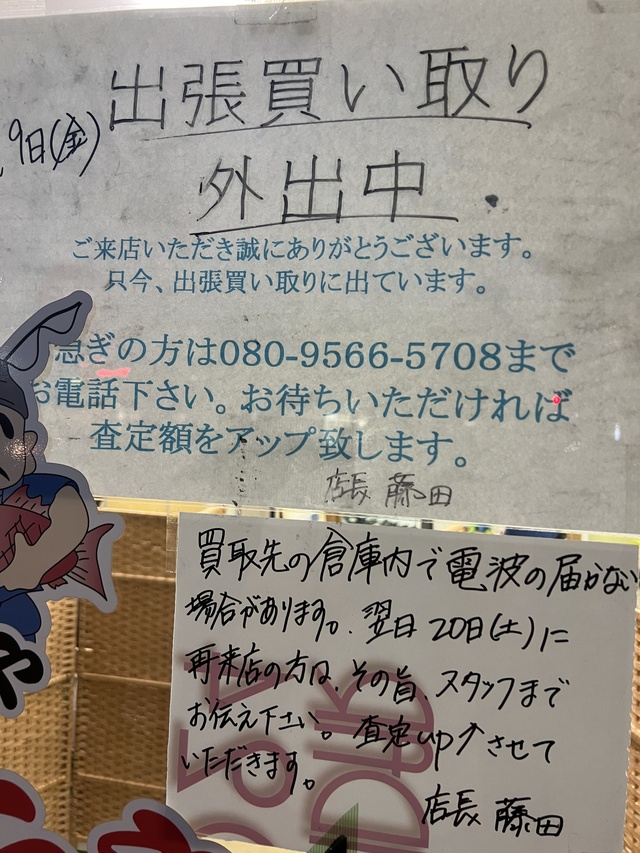 出張買い取り
9日(金)
外出中.
ご来店いただき誠にありがとうございます。
只今、出張買い取りに出ています。
急ぎの方は080-9566-5708まで
お電話下さい。お待ちいただければ
査定額をアップ致します。
店長 藤田
買取先の倉庫内で電波の届かない
場合があります。翌日20日(土)に
再来店の方は、その旨、スタッフまで
お伝え下さい。査定up↑させて
いただきます。
店長 藤田
や